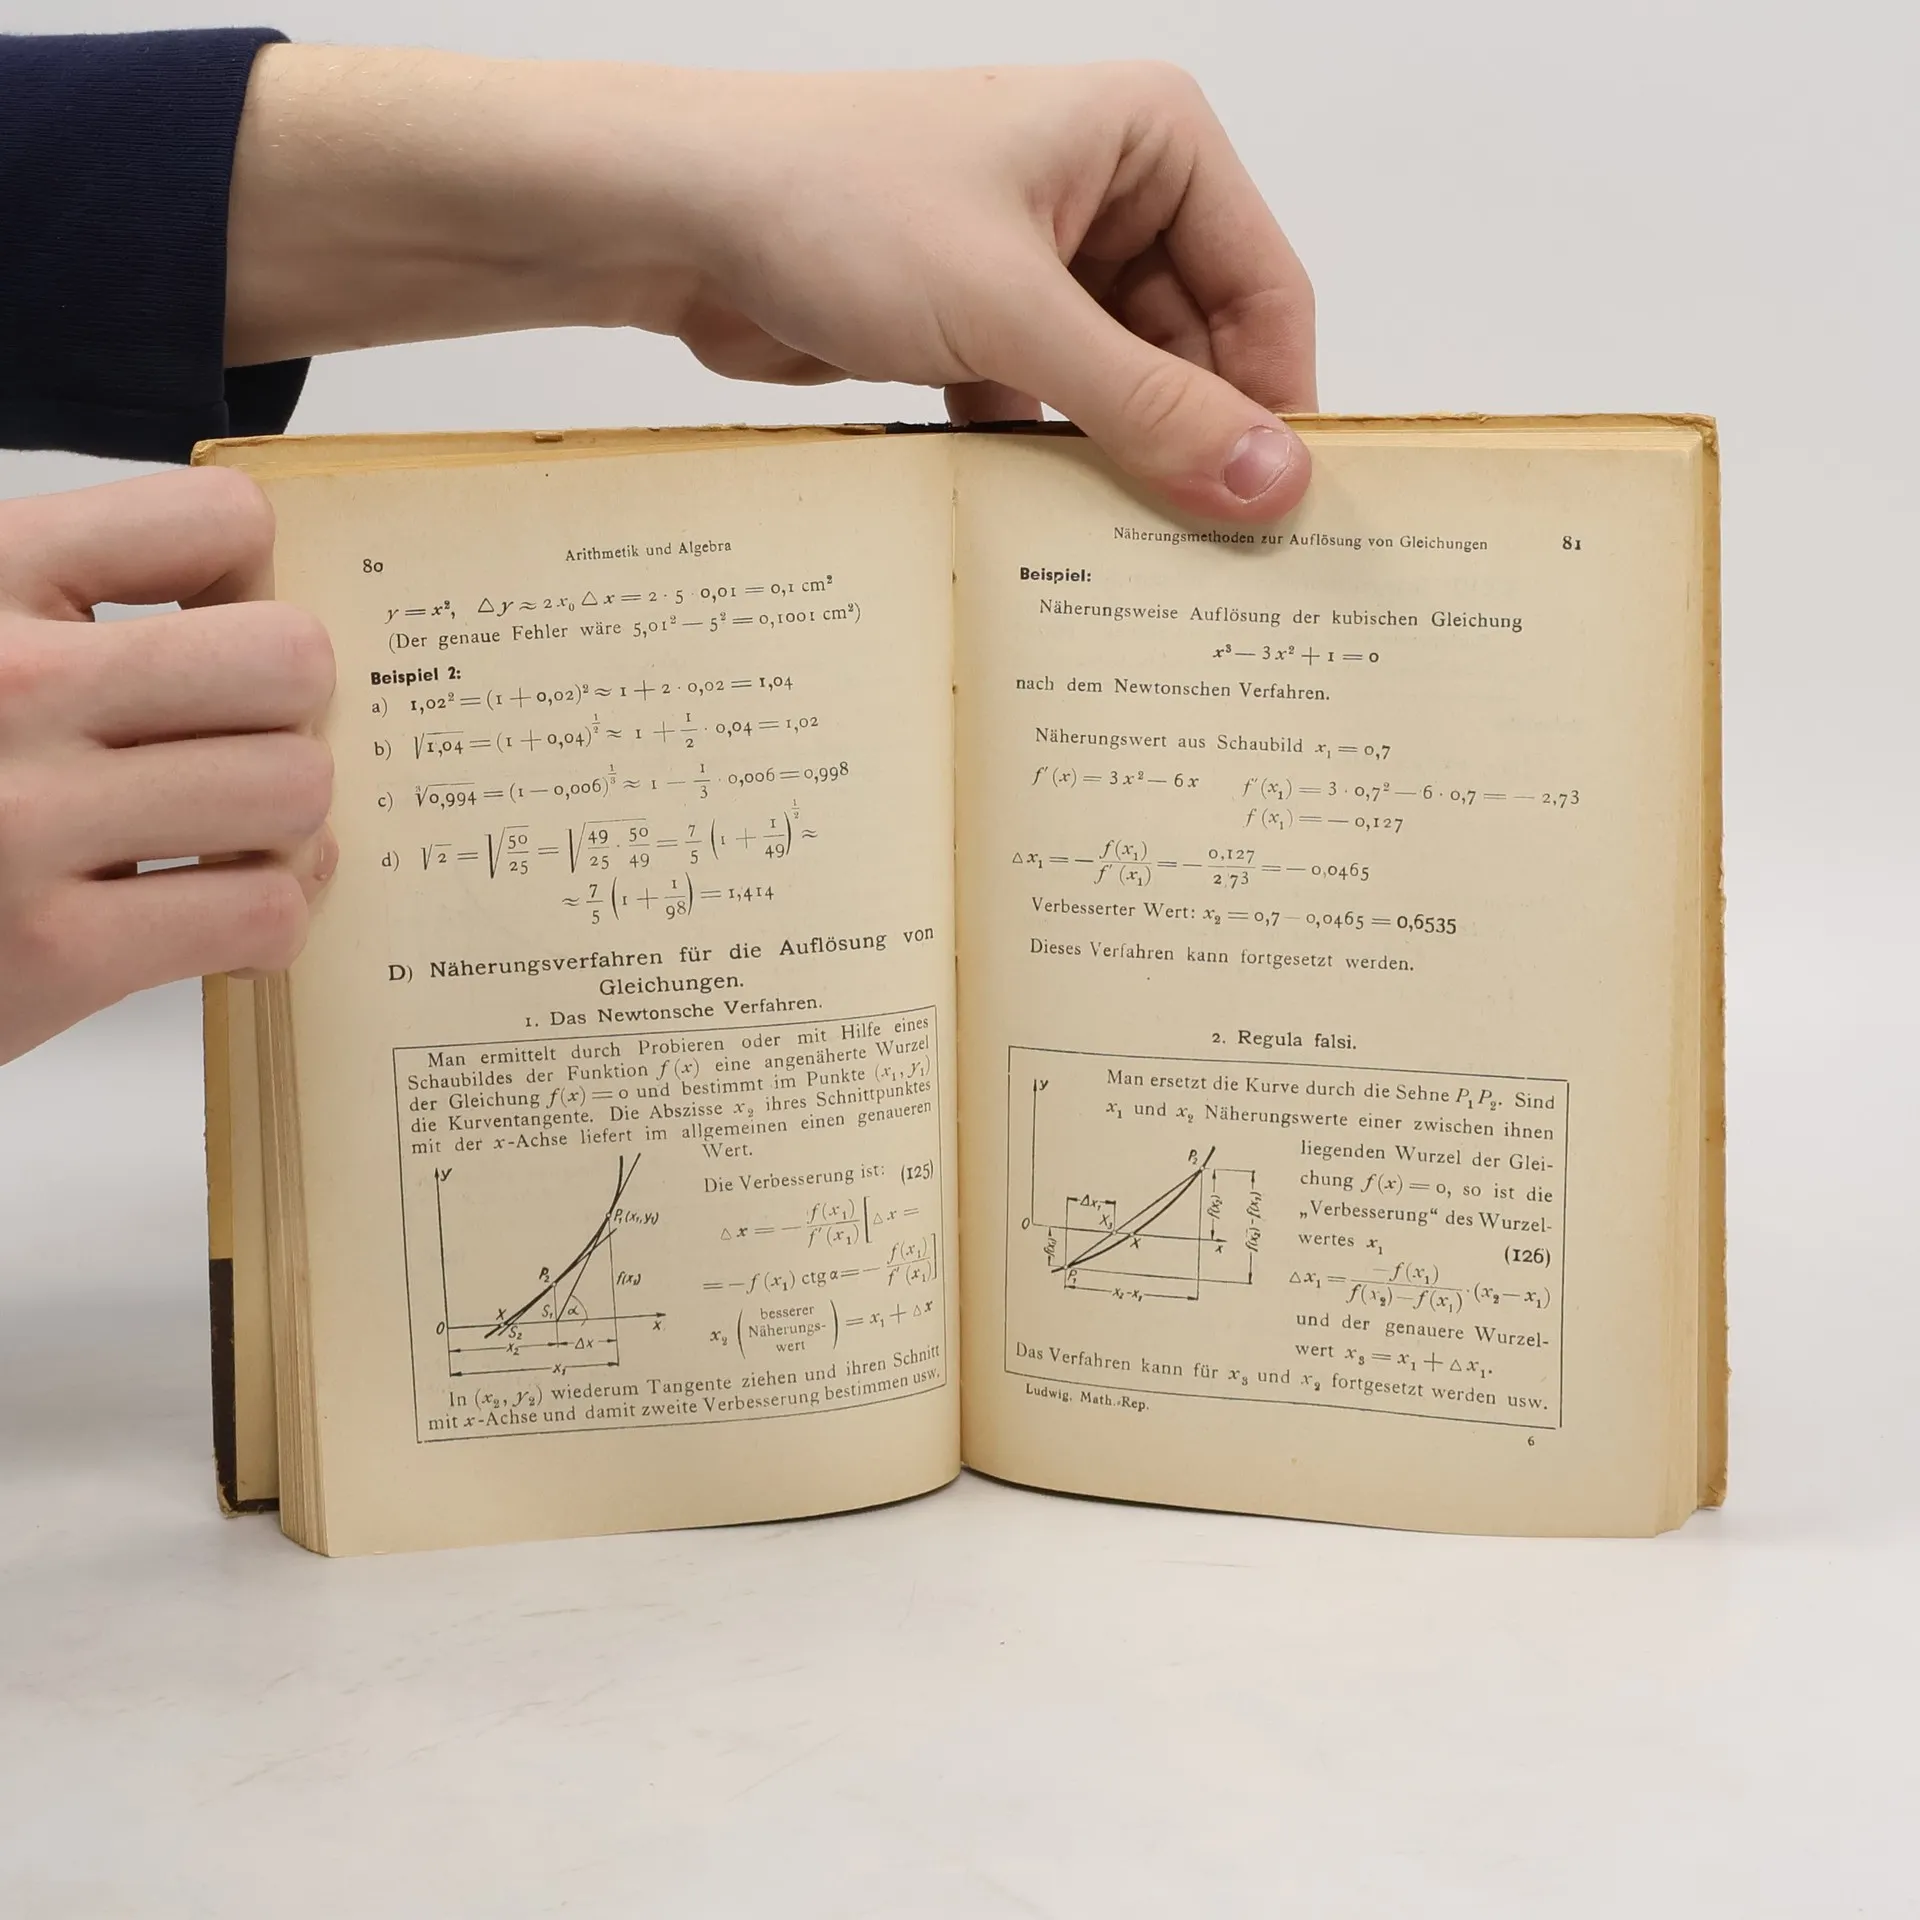 80
Arithmetik und Algebra
y = x², △y ≈ 2 x₀ △x = 2 · 5 · 0,01 = 0,1 cm²
(Der genaue Fehler wäre 5,01² — 5² = 0,1001 cm²)
Beispiel 2:
a) 1,02² = (1 + 0,02)² ≈ 1 + 2 · 0,02 = 1,04
b) √1,04 = (1 + 0,04)^(1/2) ≈ 1 + 1/2 · 0,04 = 1,02
c) ∛0,994 = (1 — 0,006)^(1/3) ≈ 1 — 1/3 · 0,006 = 0,998
d) √2 = √(50/25) = √(49/25 · 50/49) = 7/5 (1 + 1/49)^(1/2) ≈
≈ 7/5 (1 + 1/98) = 1,414
D) Näherungsverfahren für die Auflösung von
Gleichungen.
1. Das Newtonsche Verfahren.
Man ermittelt durch Probieren oder mit Hilfe eines
Schaubildes der Funktion f (x) eine angenäherte Wurzel
der Gleichung f(x) = 0 und bestimmt im Punkte (x₁, y₁)
die Kurventangente. Die Abszisse x₂ ihres Schnittpunktes
mit der x-Achse liefert im allgemeinen einen genaueren
Wert.
Die Verbesserung ist: (125)
△x = — f(x₁)/f′(x₁) [△x =
= — f (x₁) ctg α = — f(x₁)/f′(x₁)]
x₂ (besserer Näherungs-wert) = x₁ + △x
y
P₁(x₁,y₁)
P₂
f(x₁)
X
S₁
α
O
S₂
x
x₂
Δx
x₁
In (x₂, y₂) wiederum Tangente ziehen und ihren Schnitt
mit x-Achse und damit zweite Verbesserung bestimmen usw.
Näherungsmethoden zur Auflösung von Gleichungen
81
Beispiel:
Näherungsweise Auflösung der kubischen Gleichung
x³ — 3 x² + 1 = 0
nach dem Newtonschen Verfahren.
Näherungswert aus Schaubild x₁ = 0,7
f′ (x) = 3 x² — 6 x f′ (x₁) = 3 · 0,7² — 6 · 0,7 = — 2,73
f (x₁) = — 0,127
△x₁ = — f(x₁)/f′(x₁) = — 0,127/2,73 = — 0,0465
Verbesserter Wert: x₂ = 0,7 — 0,0465 = 0,6535
Dieses Verfahren kann fortgesetzt werden.
2. Regula falsi.
Man ersetzt die Kurve durch die Sehne P₁ P₂. Sind
x₁ und x₂ Näherungswerte einer zwischen ihnen
liegenden Wurzel der Glei-
chung f(x) = 0, so ist die
„Verbesserung“ des Wurzel-
wertes x₁ (126)
△x₁ = —f(x₁)/(f(x₂) — f(x₁)) · (x₂ — x₁)
und der genauere Wurzel-
wert x₃ = x₁ + △x₁.
y
P₂
Δx₁
X₃
O
X
x
f(x₂)
f(x₂)-f(x₁)
-f(x₁)
P₁
x₂-x₁
Das Verfahren kann für x₃ und x₂ fortgesetzt werden usw.
Ludwig, Math.-Rep.
6